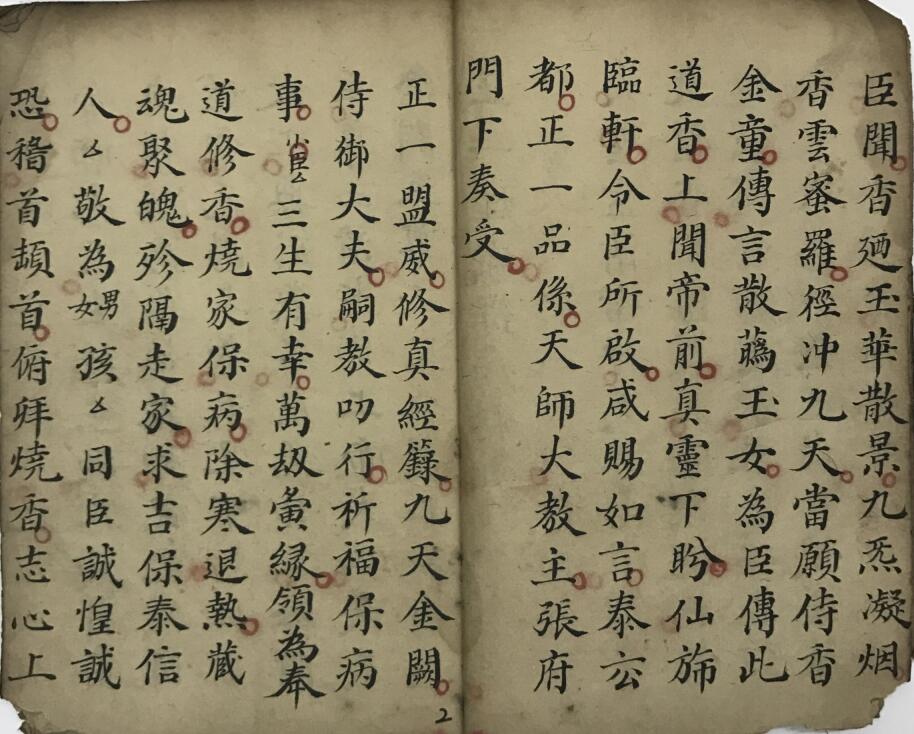 臣聞香廼玉華散景九炁凝烟
香雲蜜羅徑冲九天當願侍香
金童傳言散蘤玉女為臣傳此
道香上聞帝前真靈下盻仙斾
臨軒令臣所啟咸賜如言泰玄
都正一品係天師大教主張府
門下奏受
正一盟威修真經籙九天金闕
侍御大夫嗣教叨行祈福保病
事小臣厶三生有幸萬刼夤緣領為奉
道修香燒家保病除寒退熱蔵
魂聚魄殄隔走家求吉保泰信
人厶敬為男女孩厶同臣誠惶誠
恐稽首頓首俯拜燒香志心上
2